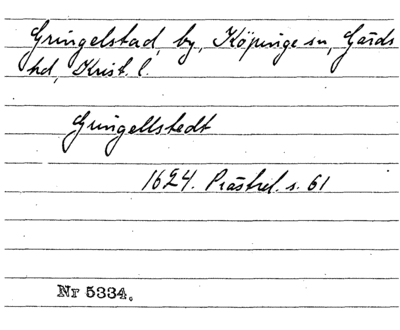 Gringelstad, by, Köpinge sn, Gärds
hd, Krist. l.
Gringellstedt
1624. Prästrel. s. 61
Nr 5334.